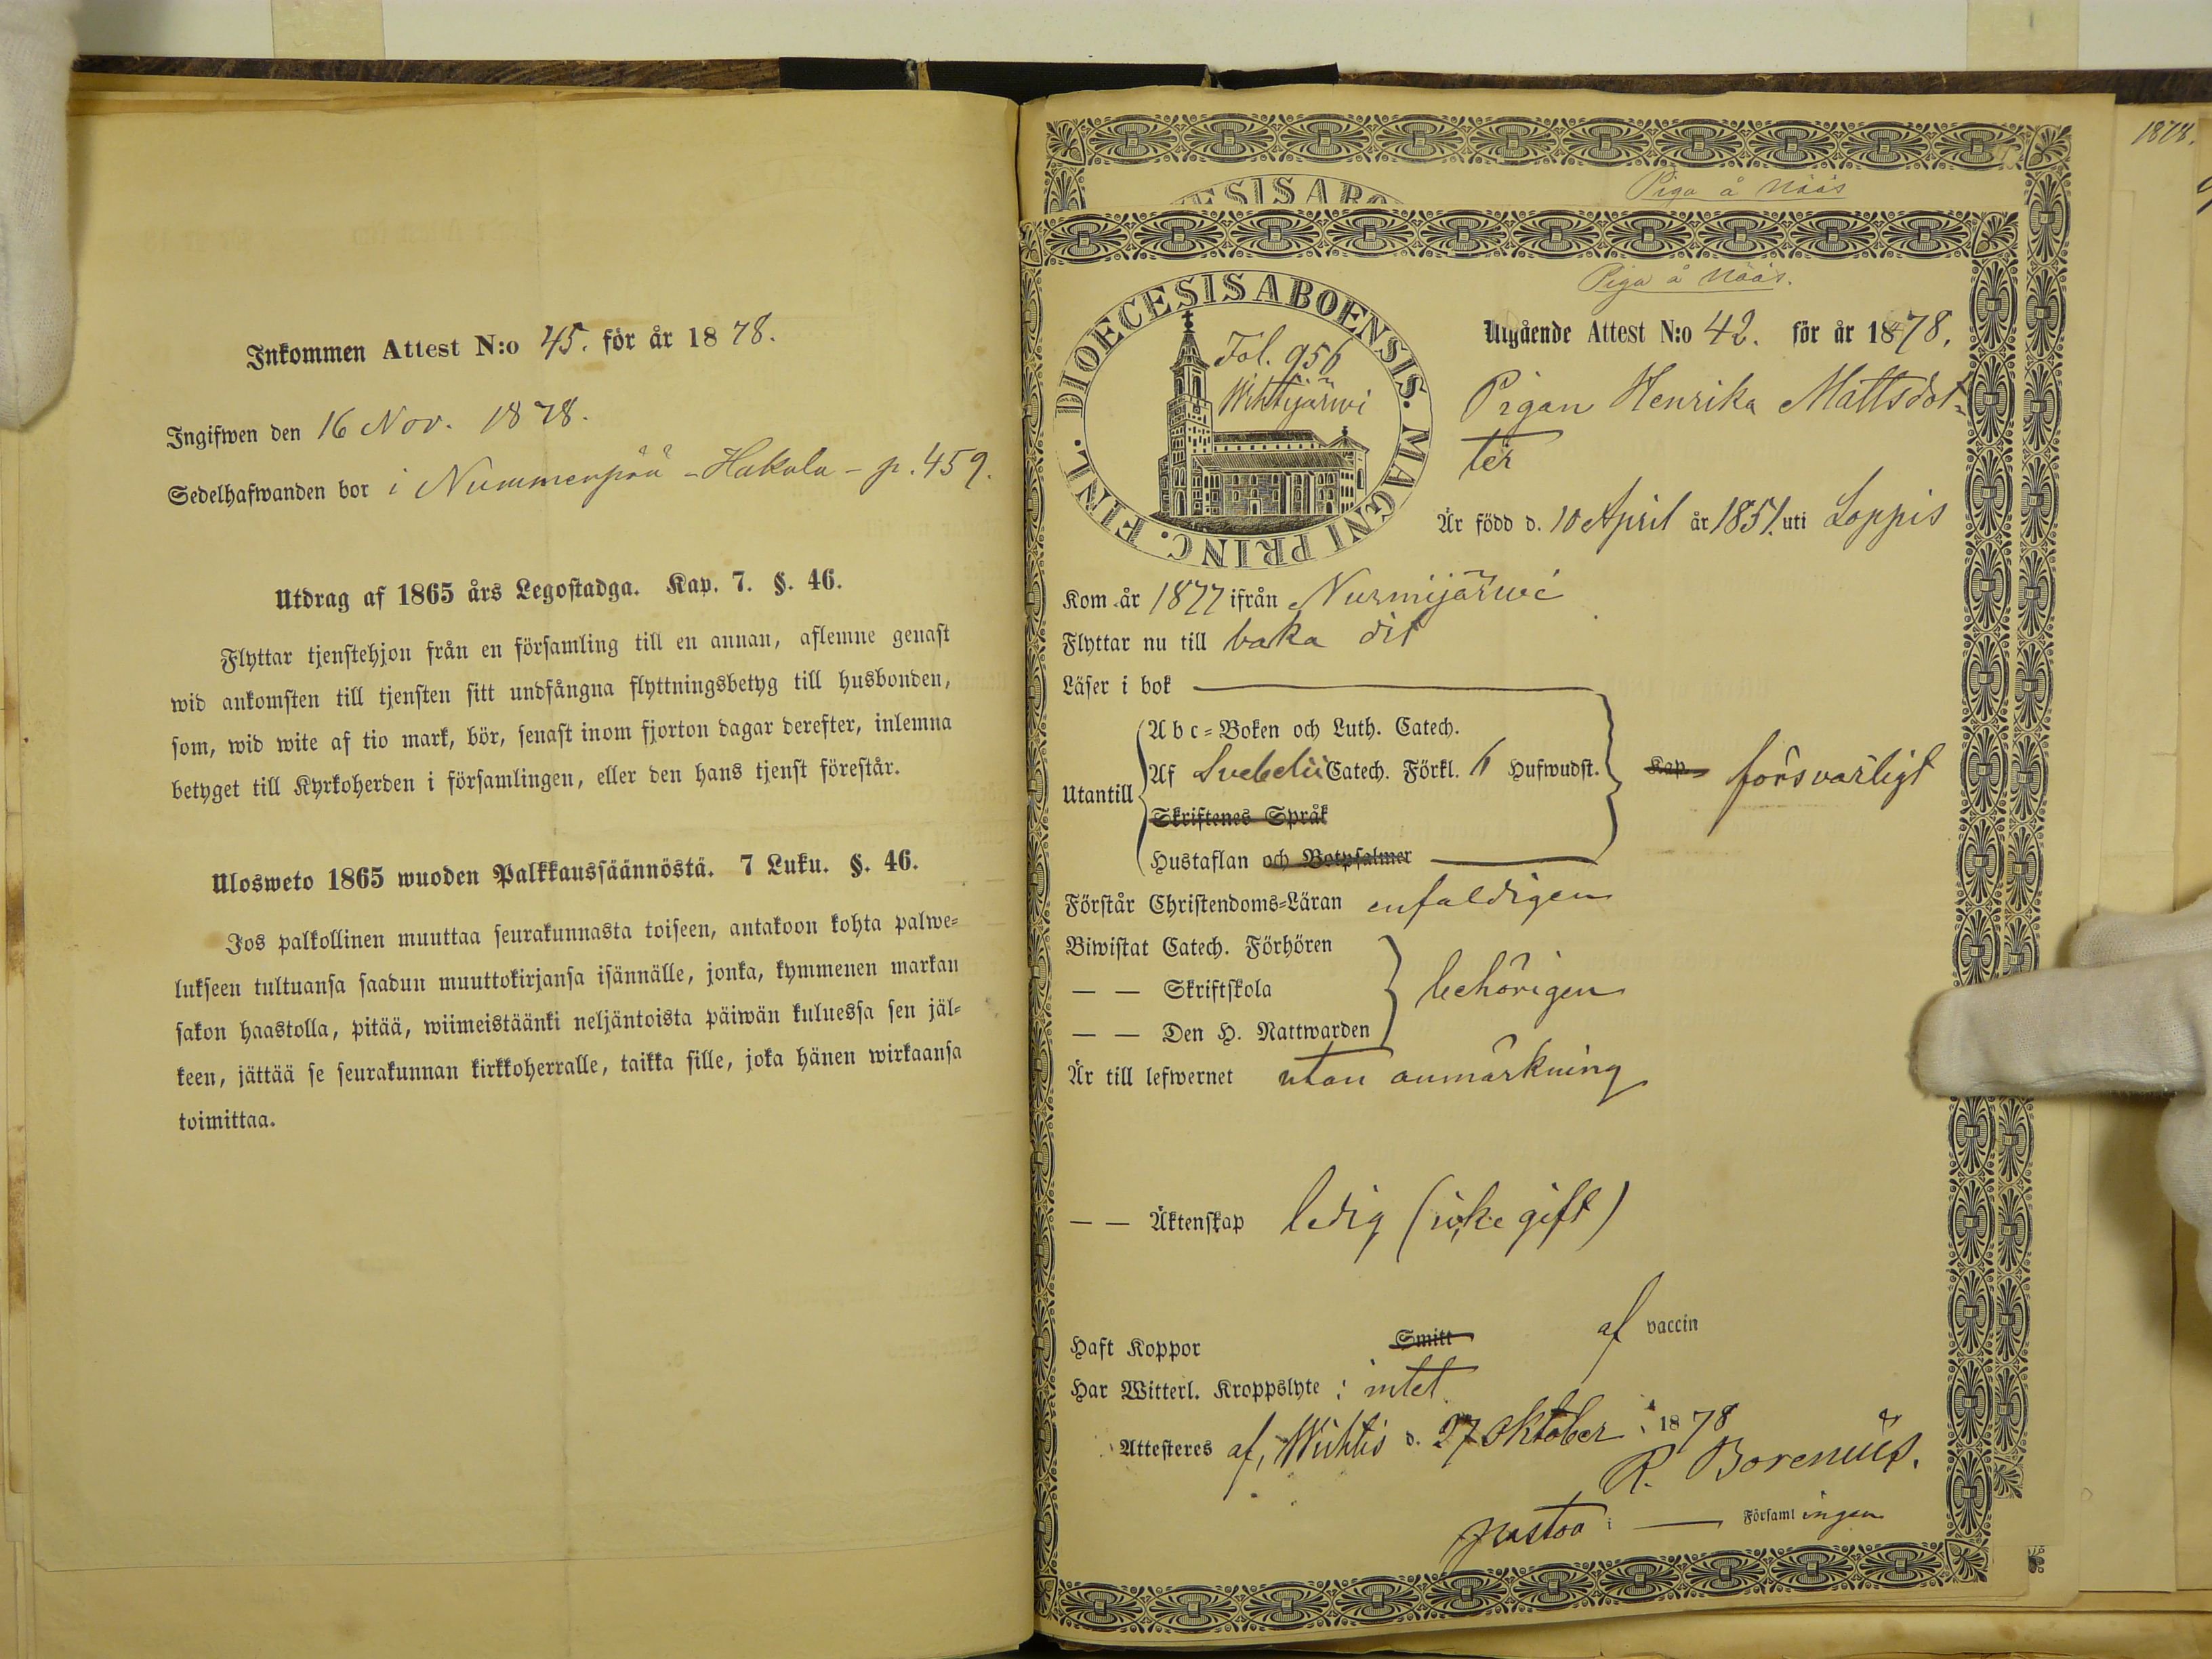 Inkommen Attest N:o 45. för år 1878.
Ingifwen den 16 Nov. 1878.
Sedelhafwanden bor i Nummenpää - Hakala - p. 459.
Utdrag af 1865 års Legostadga. Kap. 7. §. 46.
Flyttar tjenstehjon från en församling till en annan, aflemne genast
wid ankomsten till tjensten sitt undfångna flyttningsbetyg till husbonden,
som, wid wite af tio mark, bör, senast inom fjorton dagar derefter, inlemna
betyget till Kyrkoherden i församlingen, eller den hans tjenst förestår.
Ulosweto 1865 wuoden Palkkaussäännöstä. 7 Luku. §. 46.
Jos palkollinen muuttaa seurakunnasta toiseen, antakoon kohta palwe=
lukseen tultuansa saadun muuttokirjansa isännälle, jonka, kymmenen markan
sakon haastolla, pitää, wiimeistäänki neljäntoista päiwän kuluessa sen jäl=
keen, jättää se seurakunnan kirkkoherralle, taikka sille, joka hänen wirkaansa
toimittaa.
1878.
ESIS ABO
Piga å Nääs
Piga å Nääs.
DIOECESIS ABOENSIS. MAGNI PRINC. FINL.
Fol. 956
Wihtijärwi
Utgående Attest N:o 42. för år 1878.
Pigan Henrika Mattsdot=
ter
Är född d. 10 April år 1851. uti Loppis
Kom år 1877 ifrån Nurmijärwi
Flyttar nu till baka dit
Läser i bok
Utantill
Abc=Boken och Luth. Catech.
Af Svebelii Catech. Förkl. 6 Hufwudst.
Skriftenes Språk
Hustaflan och Botpsalmer
Kap. försvarligt
Förstår Christendoms=Läran enfaldigen
Biwistat Catech. Förhören
— — Skriftskola
— — Den H. Nattwarden
behörigen
Är till lefwernet utan anmärkning
— — Äktenskap ledig (icke gift)
Haft Koppor Smitt af vaccin
Har Witterl. Kroppslyte : intet
Attesteres af, Wichtis d. 27 Oktober 1878
R. Borenius.
pastor i — Församlingen